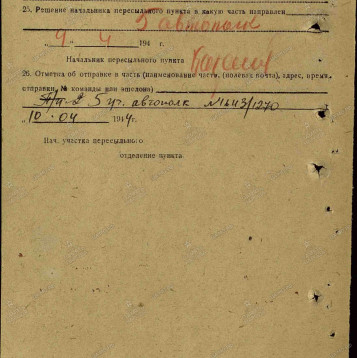 25. Решение начальника пересыльного пункта в какую часть направлен
5 автополк
„ 9 “ 4 194 г.
Начальник пересыльного пункта
26. Отметка об отправке в часть (наименование части, (полевая почта), адрес, время
отправки, № команды или эшелона)
5 уч. автополк №
„ 10 “ 04 1944г.
Нач. участка пересыльного
отделение пункта